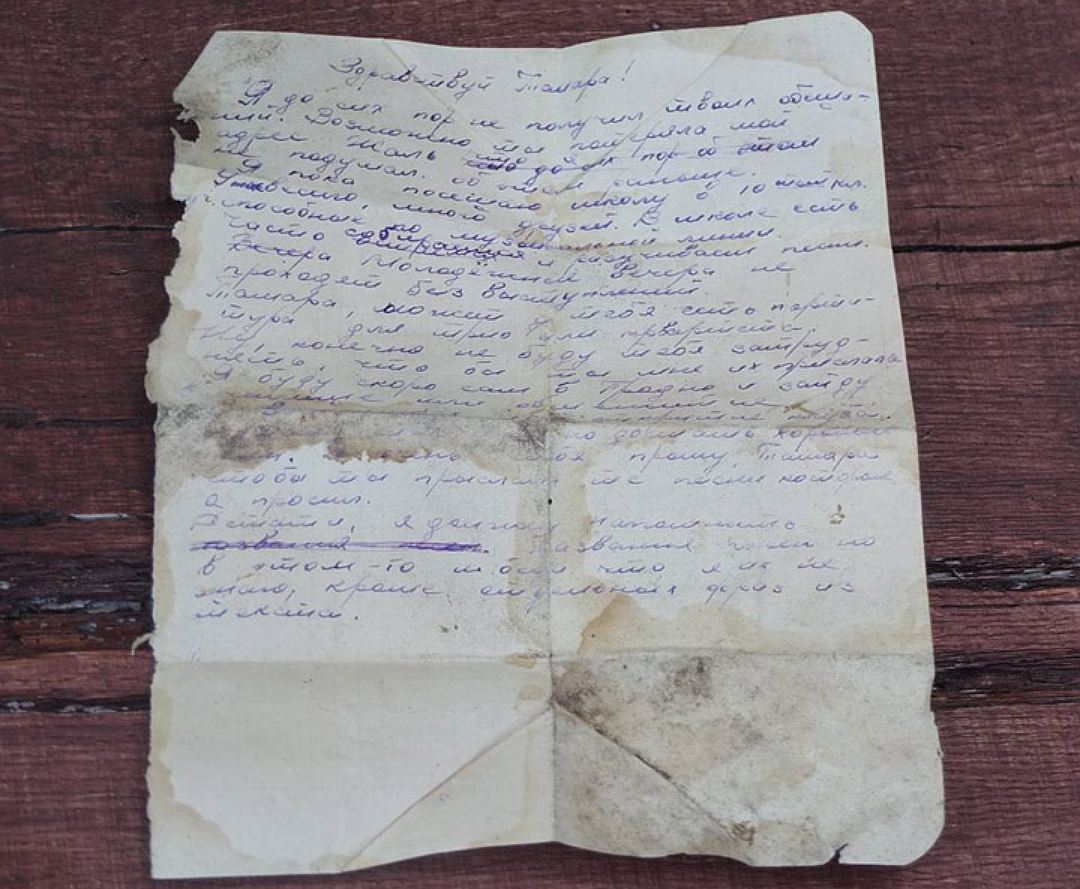 Здравствуй Тамара!
Я до сих пор не получил твоих обеща-
ний. Возможно ты потеряла мой
адрес Жаль что я до сих пор об этом
не подумал. об этом раньше.
Я пока посещаю школу в 10том кл.
много друзей. В школе есть
способные по музыкальной линии.
Часто собираемся и разучиваем песни.
Вечера Молодёжные Вечера не
проходят без выступлений.
Тамара, может у тебя есть парти-
тура для трио или квартета.
Ну, конечно не буду тебя затруд-
нять, что бы ты мне их прислала
Я буду скоро сам в Гродно и зайду
или
достать хороших
прошу, Тамара
чтобы ты прислала те песни которые
я просил.
Кстати, я должен напомнить
названия песен. Названия песен но
в этом-то и беда что я их не
знаю, кроме отдельных фраз из
текста.